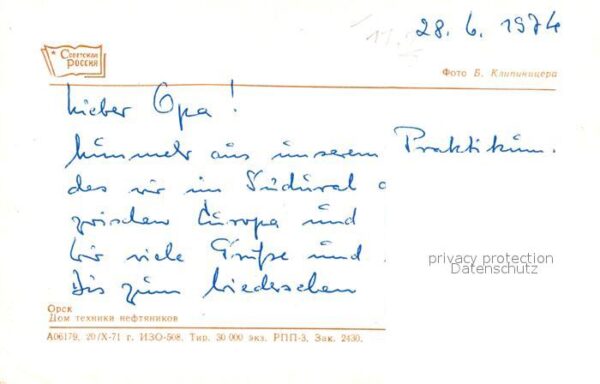 28. 6. 1974
Советская
Россия
Фото Б. Клипиницера
Lieber Opa!
Nunmehr aus unserem Praktikum.
das wir im Südural
zwischen Europa und
wir viele Grüße und
Bis zum Wiedersehen
privacy protection
Datenschutz
Орск
Дом техники нефтяников
А06179. 20/X-71 г. ИЗО-508. Тир. 30 000 экз. РПП-3. Зак. 2430.